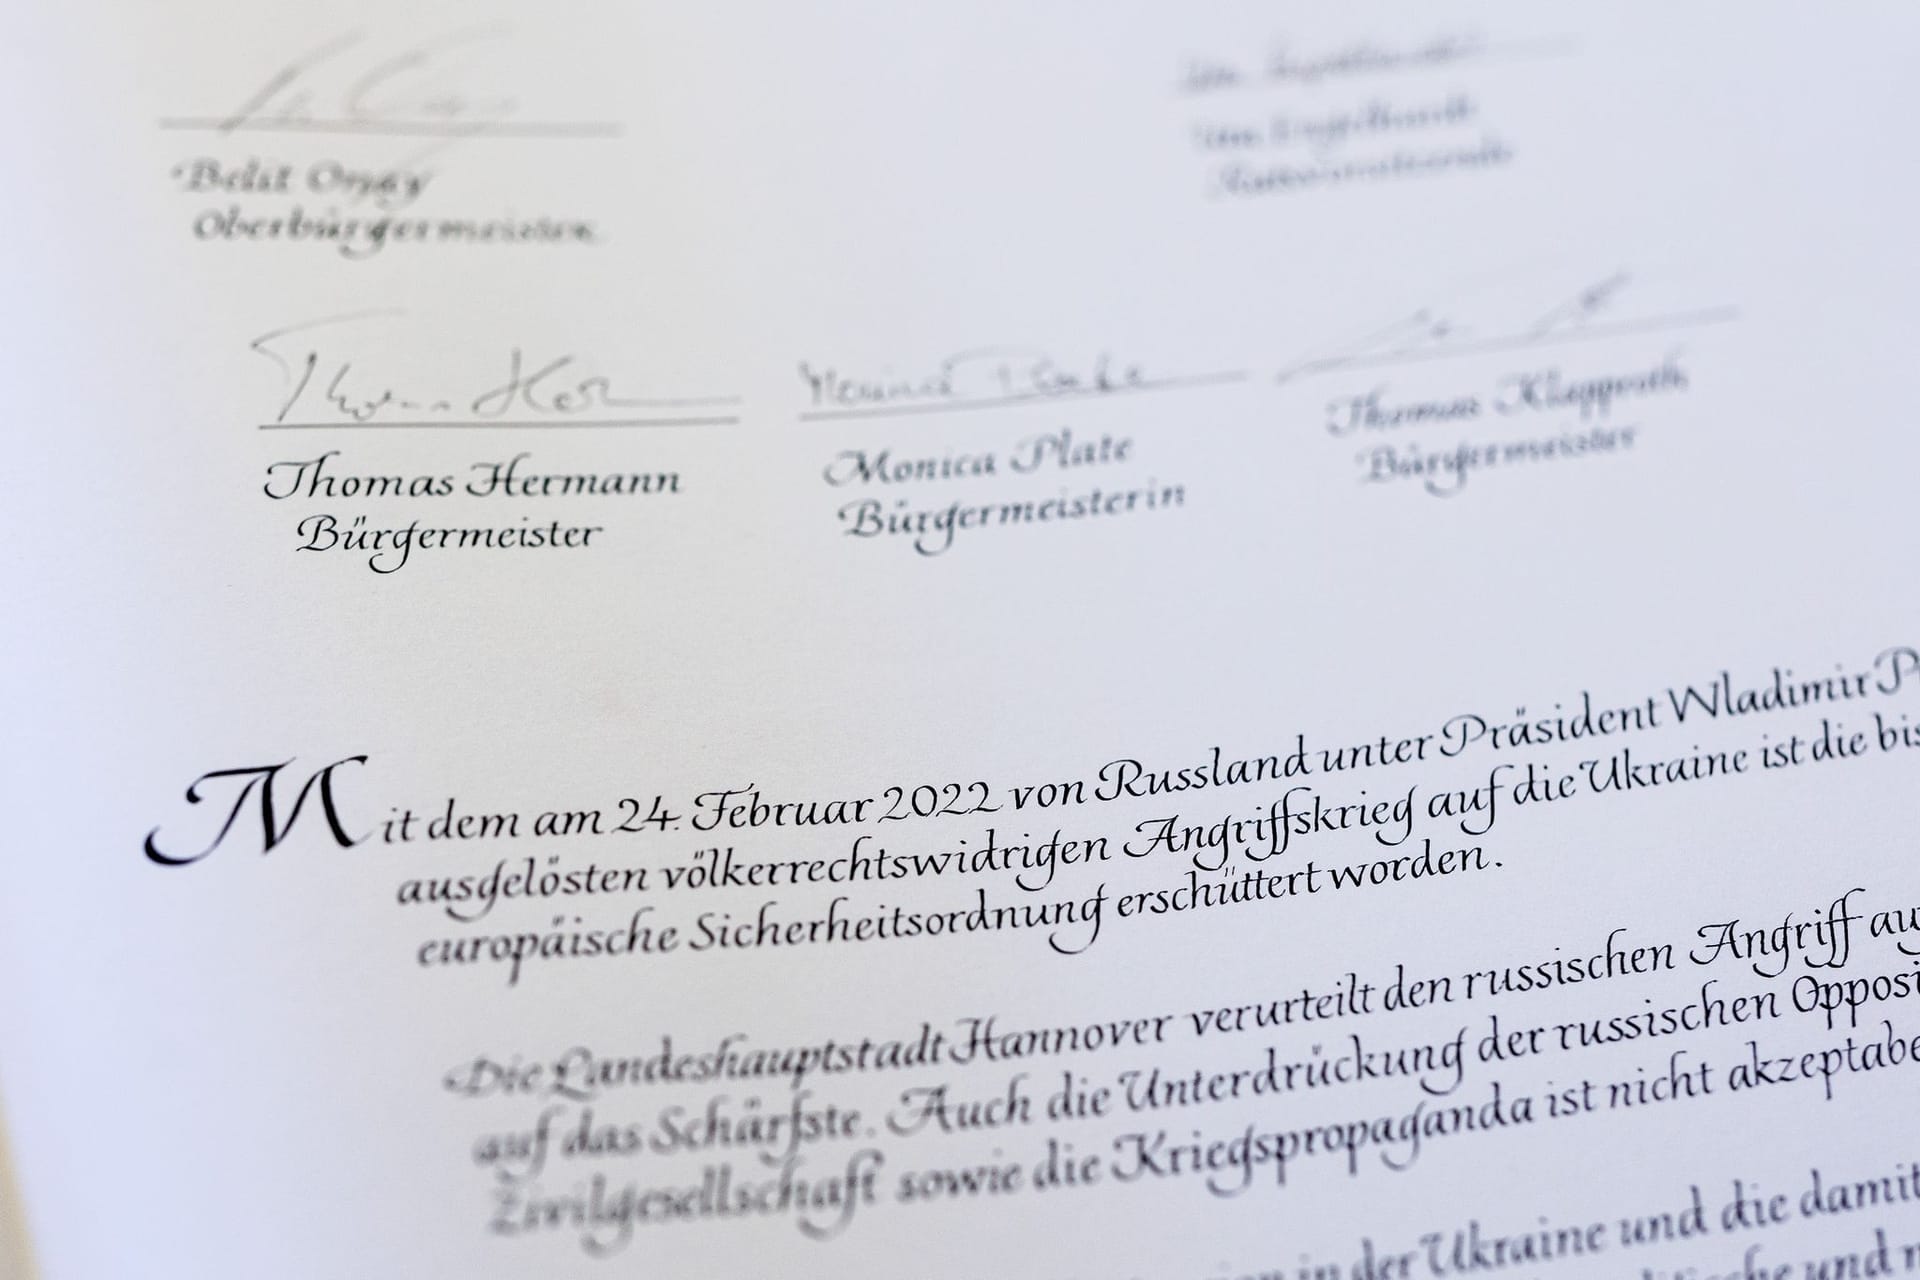 Belit Onay
Oberbürgermeister
Thomas Hermann
Bürgermeister
Monica Plate
Bürgermeisterin
Thomas Klapproth
Bürgermeister
Mit dem am 24. Februar 2022 von Russland unter Präsident Wladimir
ausgelösten völkerrechtswidrigen Angriffskrieg auf die Ukraine ist die bis
europäische Sicherheitsordnung erschüttert worden.
Die Landeshauptstadt Hannover verurteilt den russischen Angriff au
auf das Schärfste. Auch die Unterdrückung der russischen Opposi
Zivilgesellschaft sowie die Kriegspropaganda ist nicht akzeptabe
in der Ukraine und die damit
und